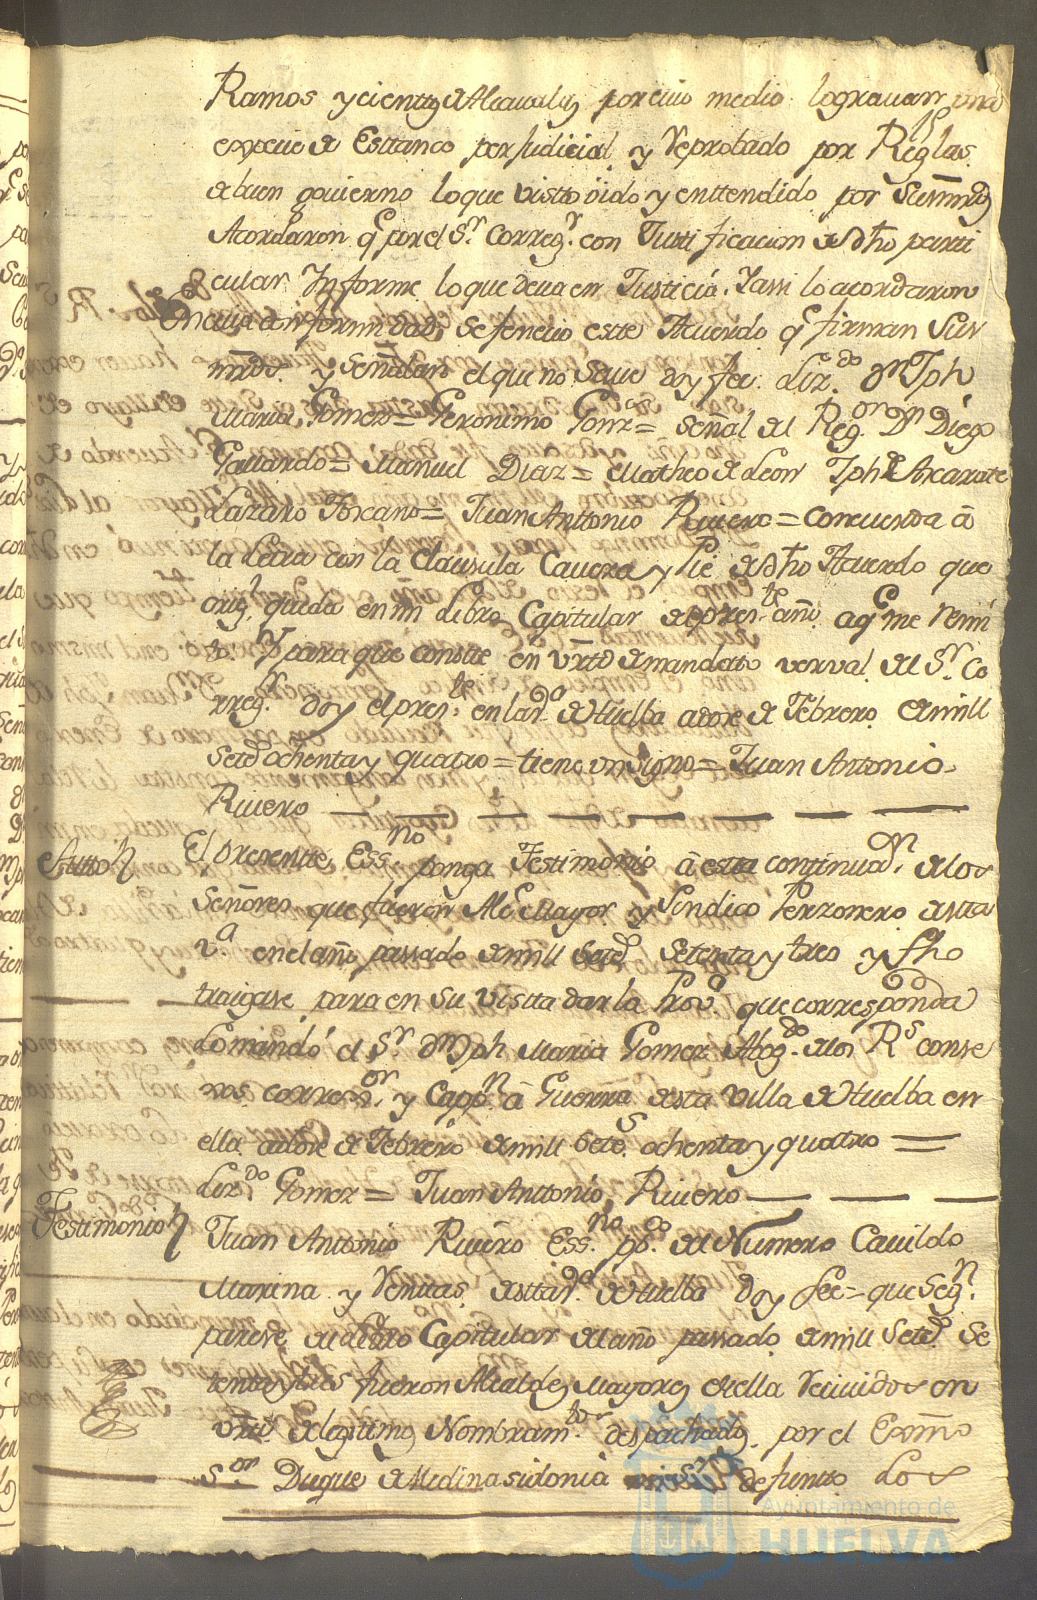 Ramos y cientos de Alcavalas por cuio medio lograuan una
expecie de Esttanco perjudicial y Reprobado por Reglas
de buen govierno lo que visto oido y enttendido por Sus mrds
Acordaron q por el Sr. Correg.r con Justificacion de dho parti
cular Informe lo que deva en Justicia, Y assi lo acordaron
En cuia conformidad se fenecio este Acuerdo q firman Sus
mrds. y señalan el que no Save doy fee. Liz.do Dn Jph
Maria Gomez = Geronimo Gonz = Señal del Reg.or Dn Diego
Gallardo = Manuel Diaz = Matheo de Leon Jph de Ascarate
Lazaro Toscano = Juan Antonio Riuero = Concuerda â
la letra con la Clausula Caveza y Pie de dho Acuerdo que
orig.l queda en mi Libro Capitular de pres.te año aq me remi
to. Y para que conste en virtd de mandato verval del Sr. Co
rreg.r doy el pres.te en la v.a de Huelba a doze de Febrero de mill
Setes ochenta y quatro = tiene un Signo = Juan Antonio
Riuero
Autto El presentte Ess.no ponga Testimonio â esta continuaon. de los
Señores que fueron Alc Mayor y Sindico Perzonero de esta
v.a en el año passado de mill Setes Setenta y tres y fho
traigase para en Su vista dar la Prova que corresponda
Lo mandó el Sr. Dn Jph Maria Gomez Abog.do de los Rs conse
xos corre.or y Capp.n â Guerra de esta Villa de Huelba en
ella a doze de Febrero de mill Setes ochenta y quatro =
Liz.do Gomez = Juan Anttonio Riuero
Testimonio Juan Antonio Riuero Ess.no pp.co del Numero Cauildo
Marina y Renttas de esta v.a de Huelba doy fee = que Seg.n
pareze de Libro Capitular del año passado de mill Setes. Se
tenta y tres fueron Alcaldes Mayores de ella Recividos en
virtd. de legitimos Nombram.tos despachados por el Exmo
S.or Duque de Medina sidonia defunto Los
Ayuntamiento de
HUELVA